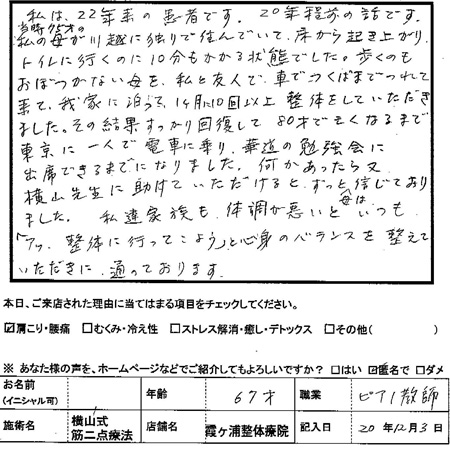 私は、22年来の患者です。20年程前の話です。
当時67才の
私の母が川越に独りで住んでいて、床から起き上がり、
トイレに行くのに10分もかかる状態でした。歩くのも
おぼつかない母を、私と友人で、車でつくばまでつれて
来て、我家に泊って、1ヶ月に10回以上整体をしていただき
ました。その結果すっかり回復して80才で亡くなるまで
東京に一人で電車に乗り、華道の勉強会に
出席できるまでになりました。何かあったら又
横山先生に助けていただけると、ずっと信じており
ました。私達家族も、体調が悪いと母はいつも
「アッ、整体に行ってこよう」と心身のバランスを整えて
いただきに、通っております。
本日、ご来店された理由に当てはまる項目をチェックしてください。
☑肩こり・腰痛 □むくみ・冷え性 □ストレス解消・癒し・デトックス □その他( )
※ あなた様の声を、ホームページなどでご紹介してもよろしいですか? □はい ☑匿名で □ダメ
お名前
(イニシャル可) 年齢 67才 職業 ピアノ教師
施術名 横山式
筋二点療法 店舗名 霞ヶ浦整体療院 記入日 20年12月3日